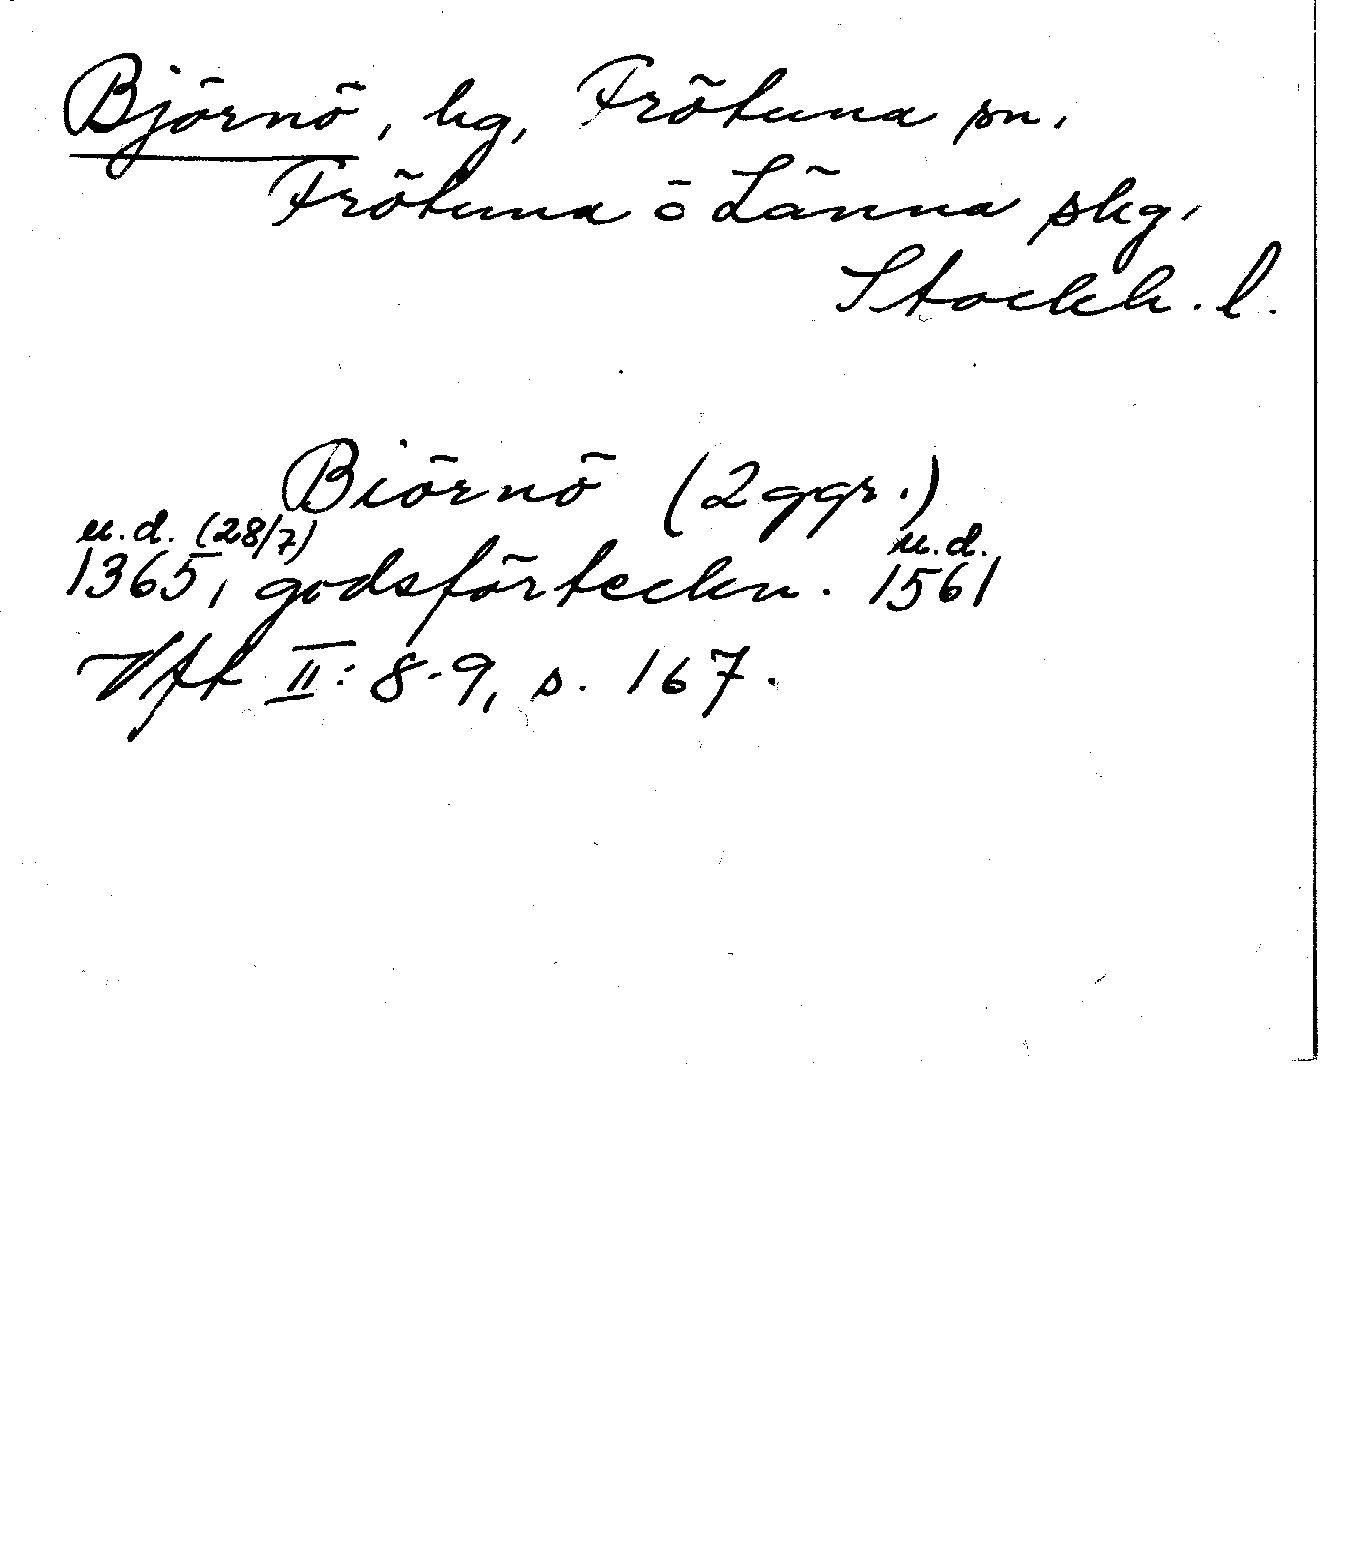 Björnö, hg, Frötuna sn,
Frötuna o Länna skg,
Stockh. l.
Biörnö (2 ggr.)
u.d. (28/7) u.d.
1365, godsförteckn. 1561
Vft II: 8-9, s. 167.